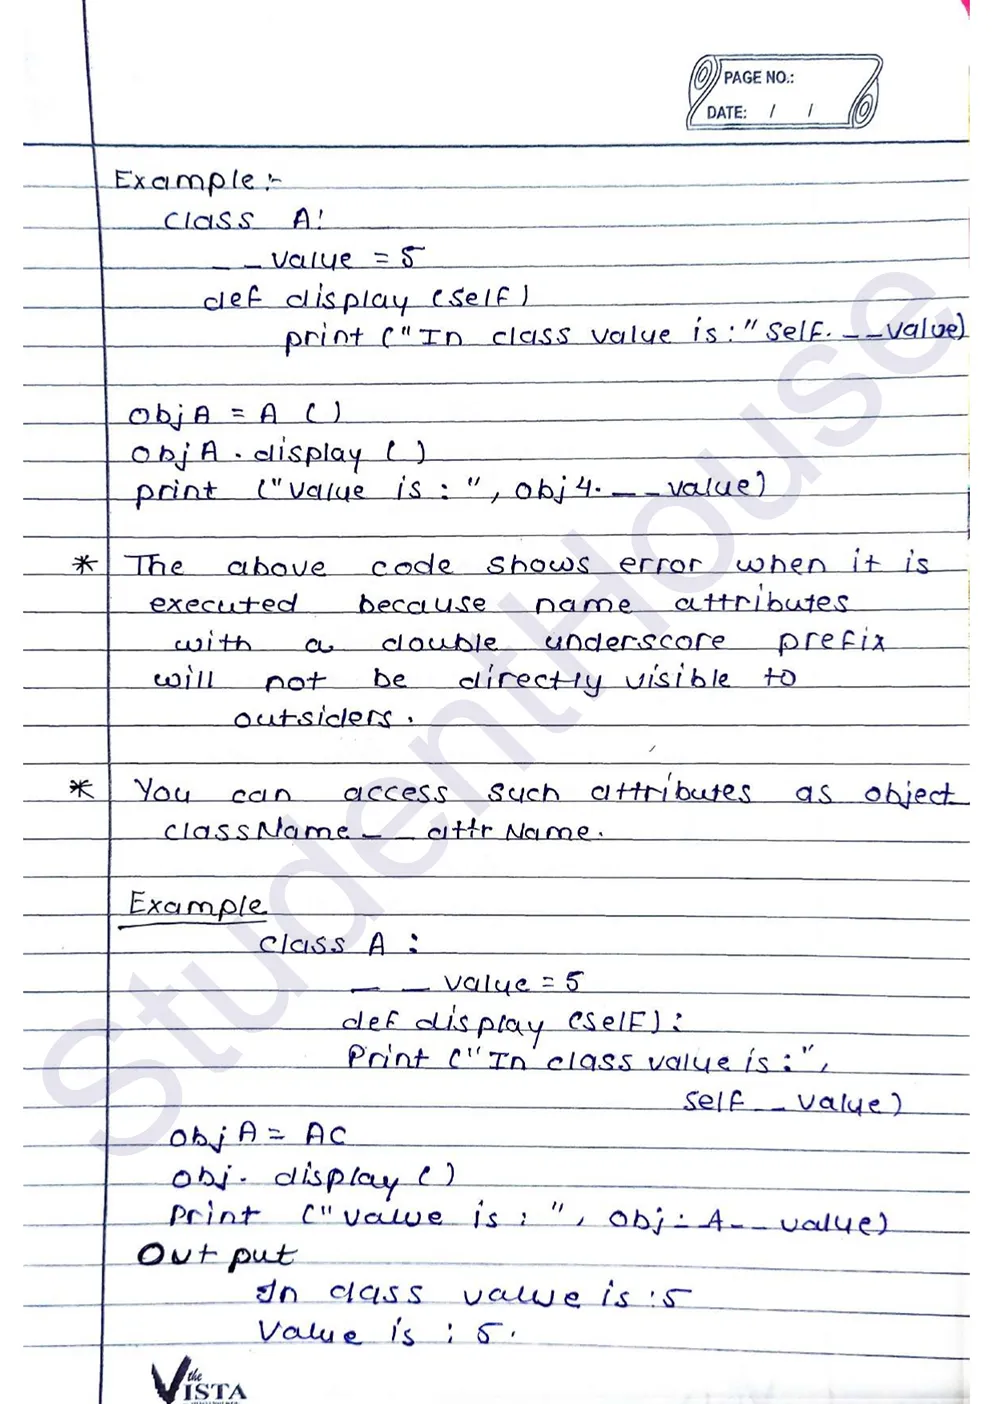 PAGE NO.:
DATE: / /
Example :-
class A:
_ _ value = 5
def display (self)
print ("In class value is:" self. _ _value)
obj A = A ( )
obj A . display ( )
print ("value is : ", obj 4. _ _ value)
* The above code shows error when it is
executed because name attributes
with a double underscore prefix
will not be directly visible to
outsiders.
* You can access such attributes as object
className _ _ attr Name.
Example
class A :
_ _ value = 5
def display (self) :
Print ("In class value is : ",
self _ _ value)
obj A = AC
obj. display ( )
Print ("value is : ", obj - A _ _ value)
Output
In class value is : 5
Value is : 5.
the VISTA
StudentHouse